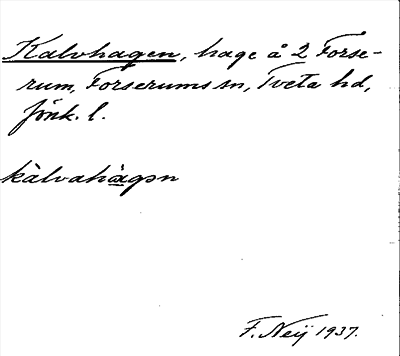 Kalvhagen, hage å 2 Forse-
rum, Forserums sn, Tveta hd,
Jönk. l.
kàlvahàgən
F. Neij 1937.